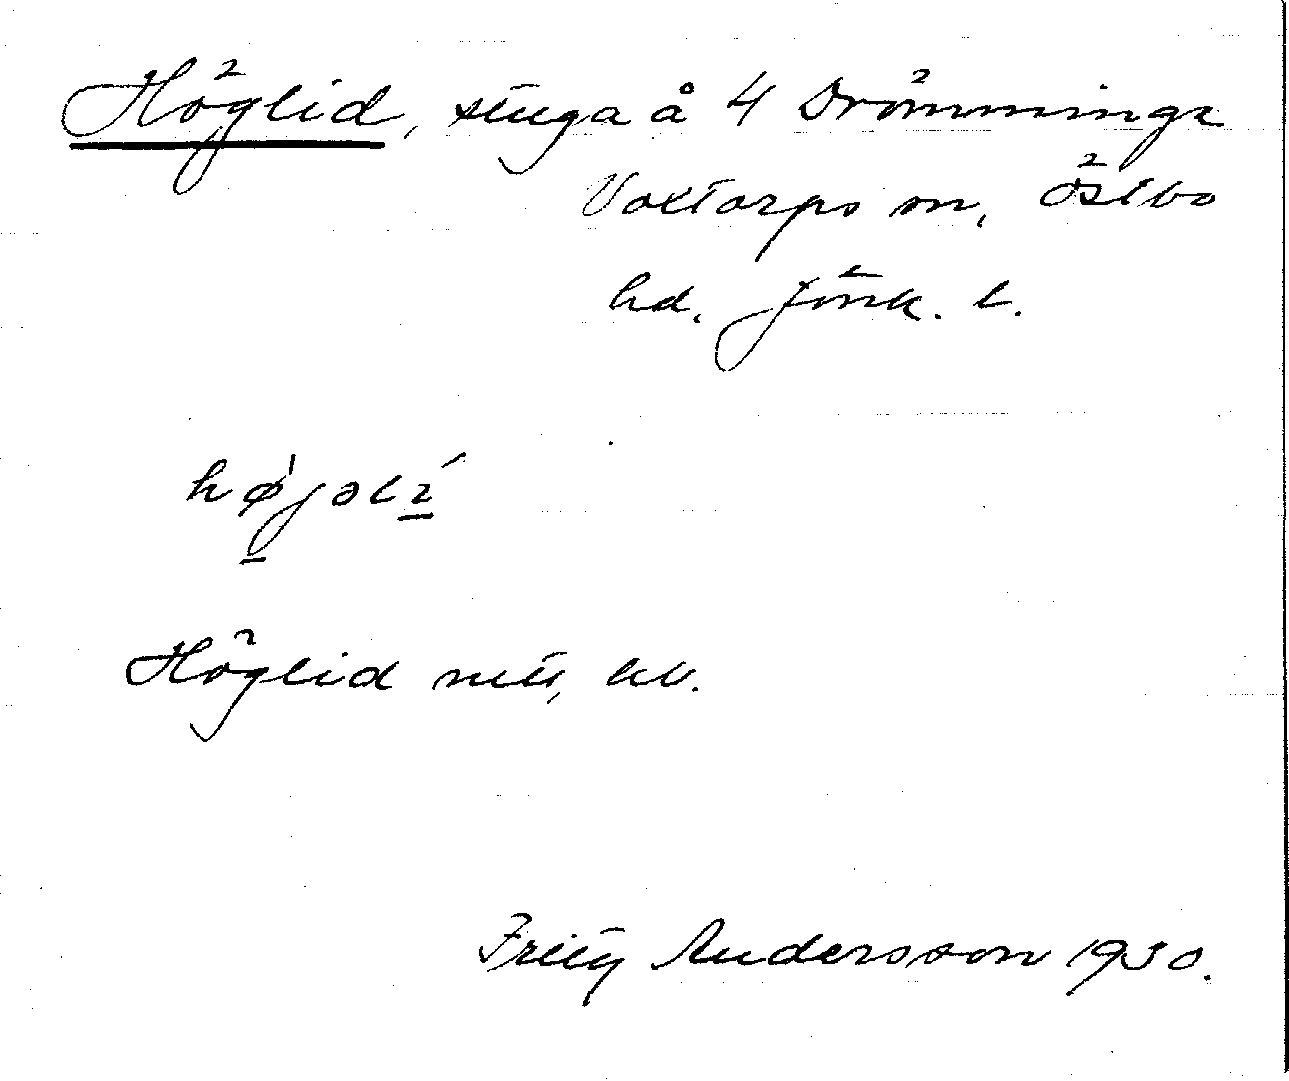 Höglid, stuga å 4 Drömminge
Voxtorps sn, Östbo
hd. Jönk. l.
Höglid
Fritz Andersson 1930.